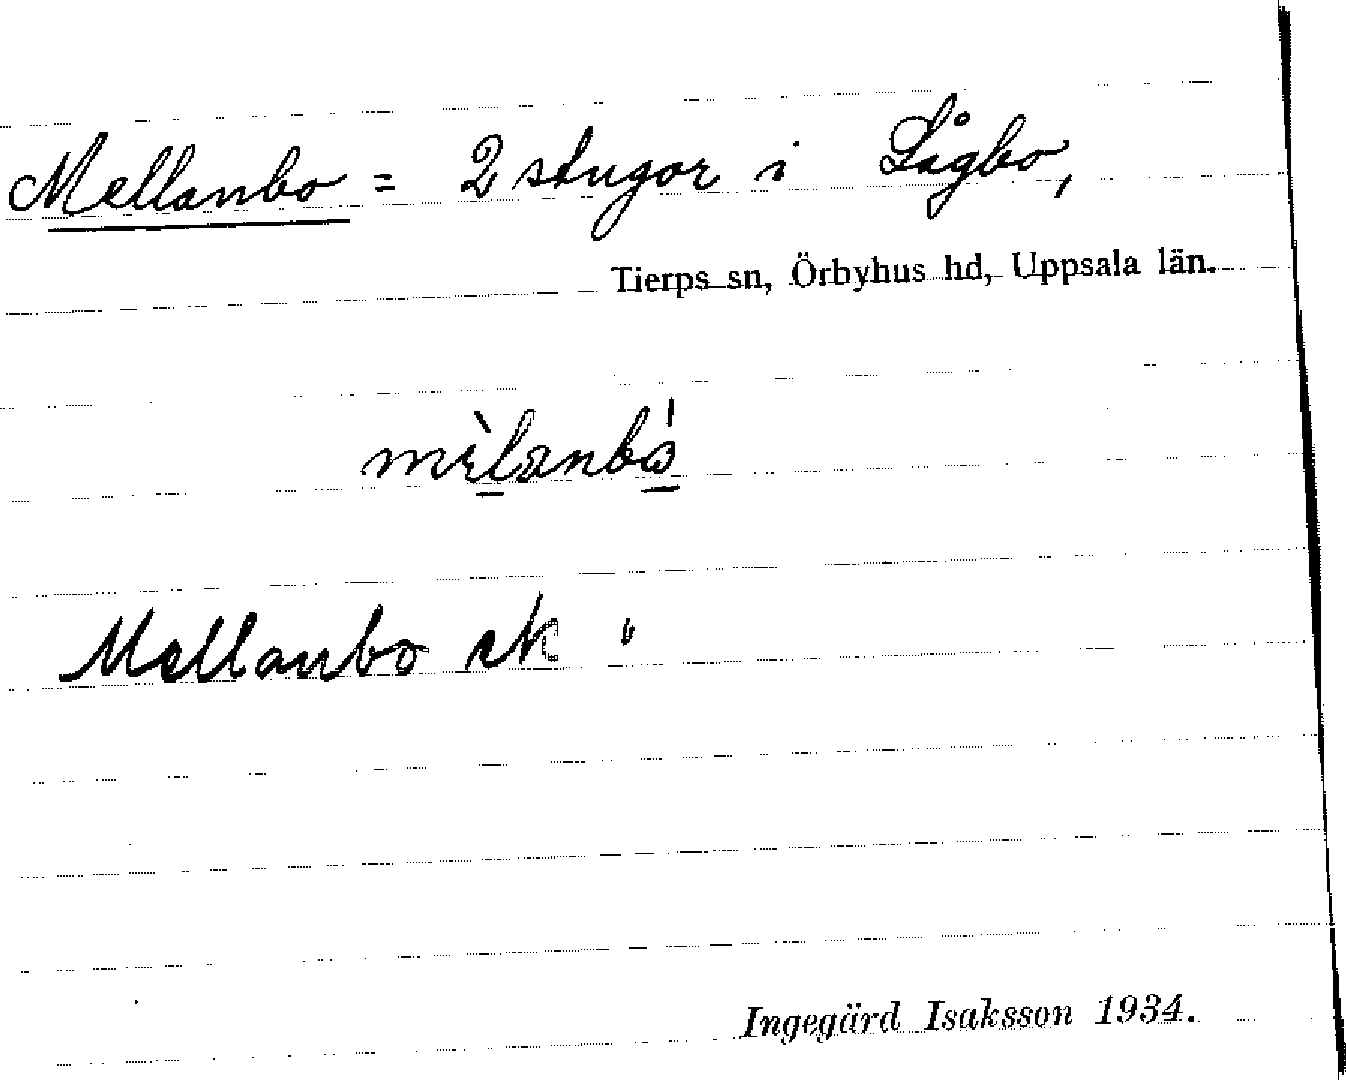 Mellanbo = 2 stugor i Lågbo,
Tierps sn, Örbyhus hd, Uppsala län.
Mellanbo ek "
Ingegärd Isaksson 1934.